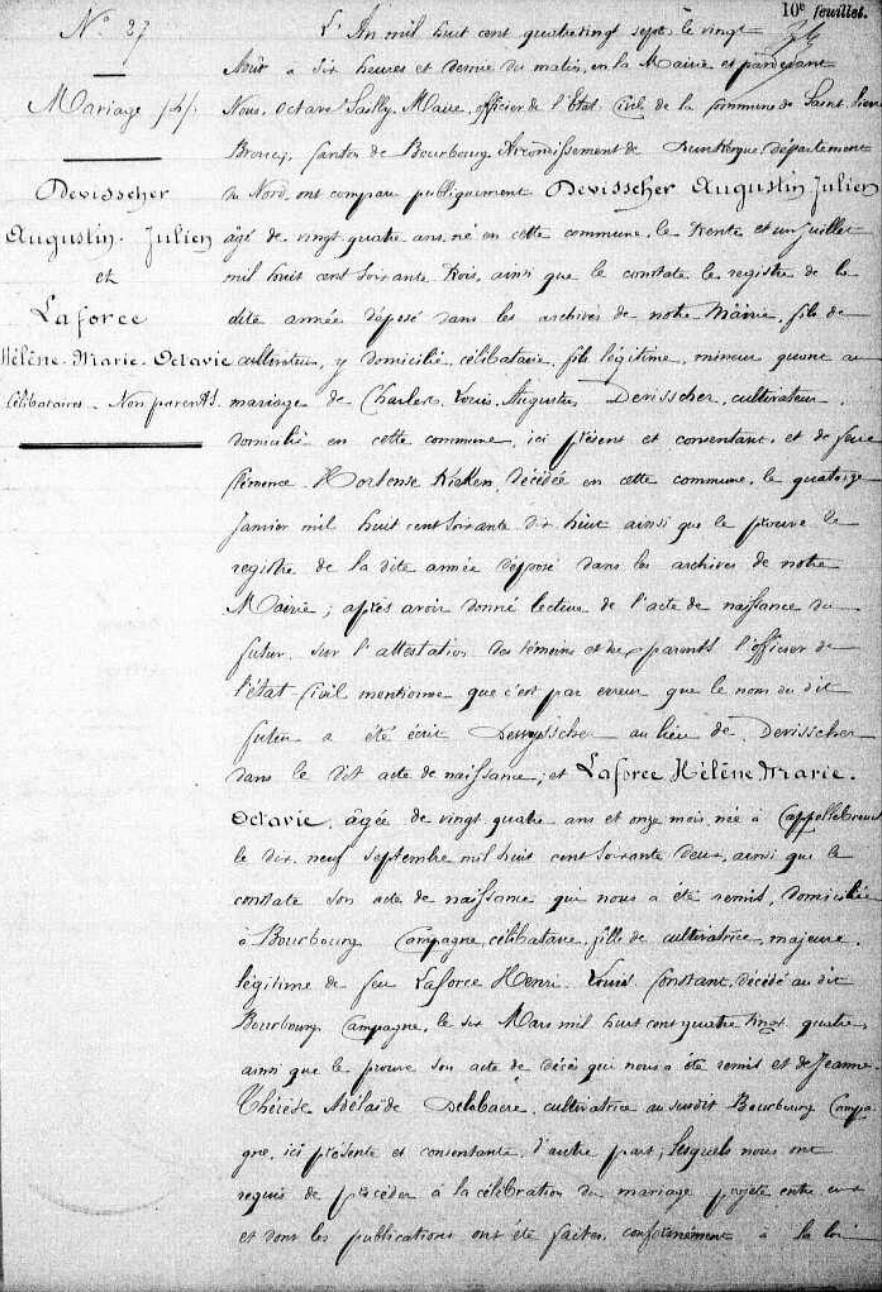 10e feuillet.
N° 27
Mariage
Devisscher
Augustin. Julien
et
Laforce
Hélène. Marie. Octavie
célibataires. Non parents.
L'An mil huit cent quatre vingt sept, le vingt
Août à six heures et demie du matin, en la Mairie et pardevant
Nous, Octave Sailly, Maire, officier de l'Etat Civil de la commune de Saint. Pierre
Brouck, Canton de Bourbourg Arrondissement de Dunkerque, département
du Nord, ont comparu publiquement Devisscher Augustin Julien
âgé de vingt quatre ans, né en cette commune, le trente et un juillet
mil huit cent soixante trois, ainsi que le constate le registre de la
dite année déposé dans les archives de notre Mairie, fils de
cultivateur, y domicilié, célibataire, fils légitime, mineur quant au
mariage de Charles. Louis. Auguste, Devisscher, cultivateur,
domicilié en cette commune, ici présent et consentant, et de feue
Clémence. Hortense Kieken, décédée en cette commune, le quatorze
Janvier mil huit cent soixante dix huit ainsi que le prouve le
registre de la dite année déposé dans les archives de notre
Mairie ; après avoir donné lecture de l'acte de naissance du
futur, sur l'attestation des témoins et des parents l'officier de
l'état Civil mentionne que c'est par erreur que le nom du dit
futur a été écrit au lieu de Devisscher
dans le dit acte de naissance ; et Laforce Hélène. Marie.
Octavie, âgée de vingt quatre ans et onze mois, née à Cappellebrouck
le dix. neuf Septembre mil huit cent soixante deux, ainsi que le
constate son acte de naissance qui nous a été remis, domiciliée
à Bourbourg Campagne, célibataire, fille de cultivatrice, majeure,
légitime de feu Laforce Henri. Louis Constant, décédé au dit
Bourbourg Campagne, le six Mars mil huit cent quatre vingt quatre,
ainsi que le prouve son acte de décès qui nous a été remis et de Jeanne.
Thérèse Adélaïde Delebacre, cultivatrice au susdit Bourbourg Campa-
gne, ici présente et consentante, d'autre part ; Lesquels nous ont
requis de procéder à la célébration du mariage projeté entre eux
et dont les publications ont été faites, conformément à la loi